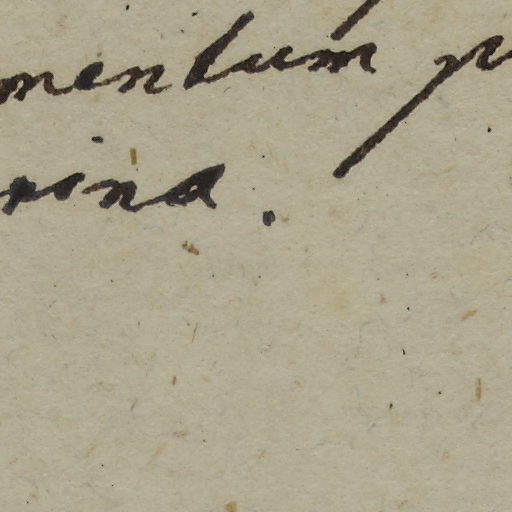 mentum p
rina.